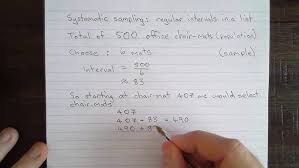 Systematic sampling: regular intervals in a list
Total of 500 office chair-mats (population)
Choose: 6 mats (sample)
Interval = 500
6
≈ 83
So starting at chair-mat 407 we would select
chair-mats:
407
407 + 83 = 490
490 + 8